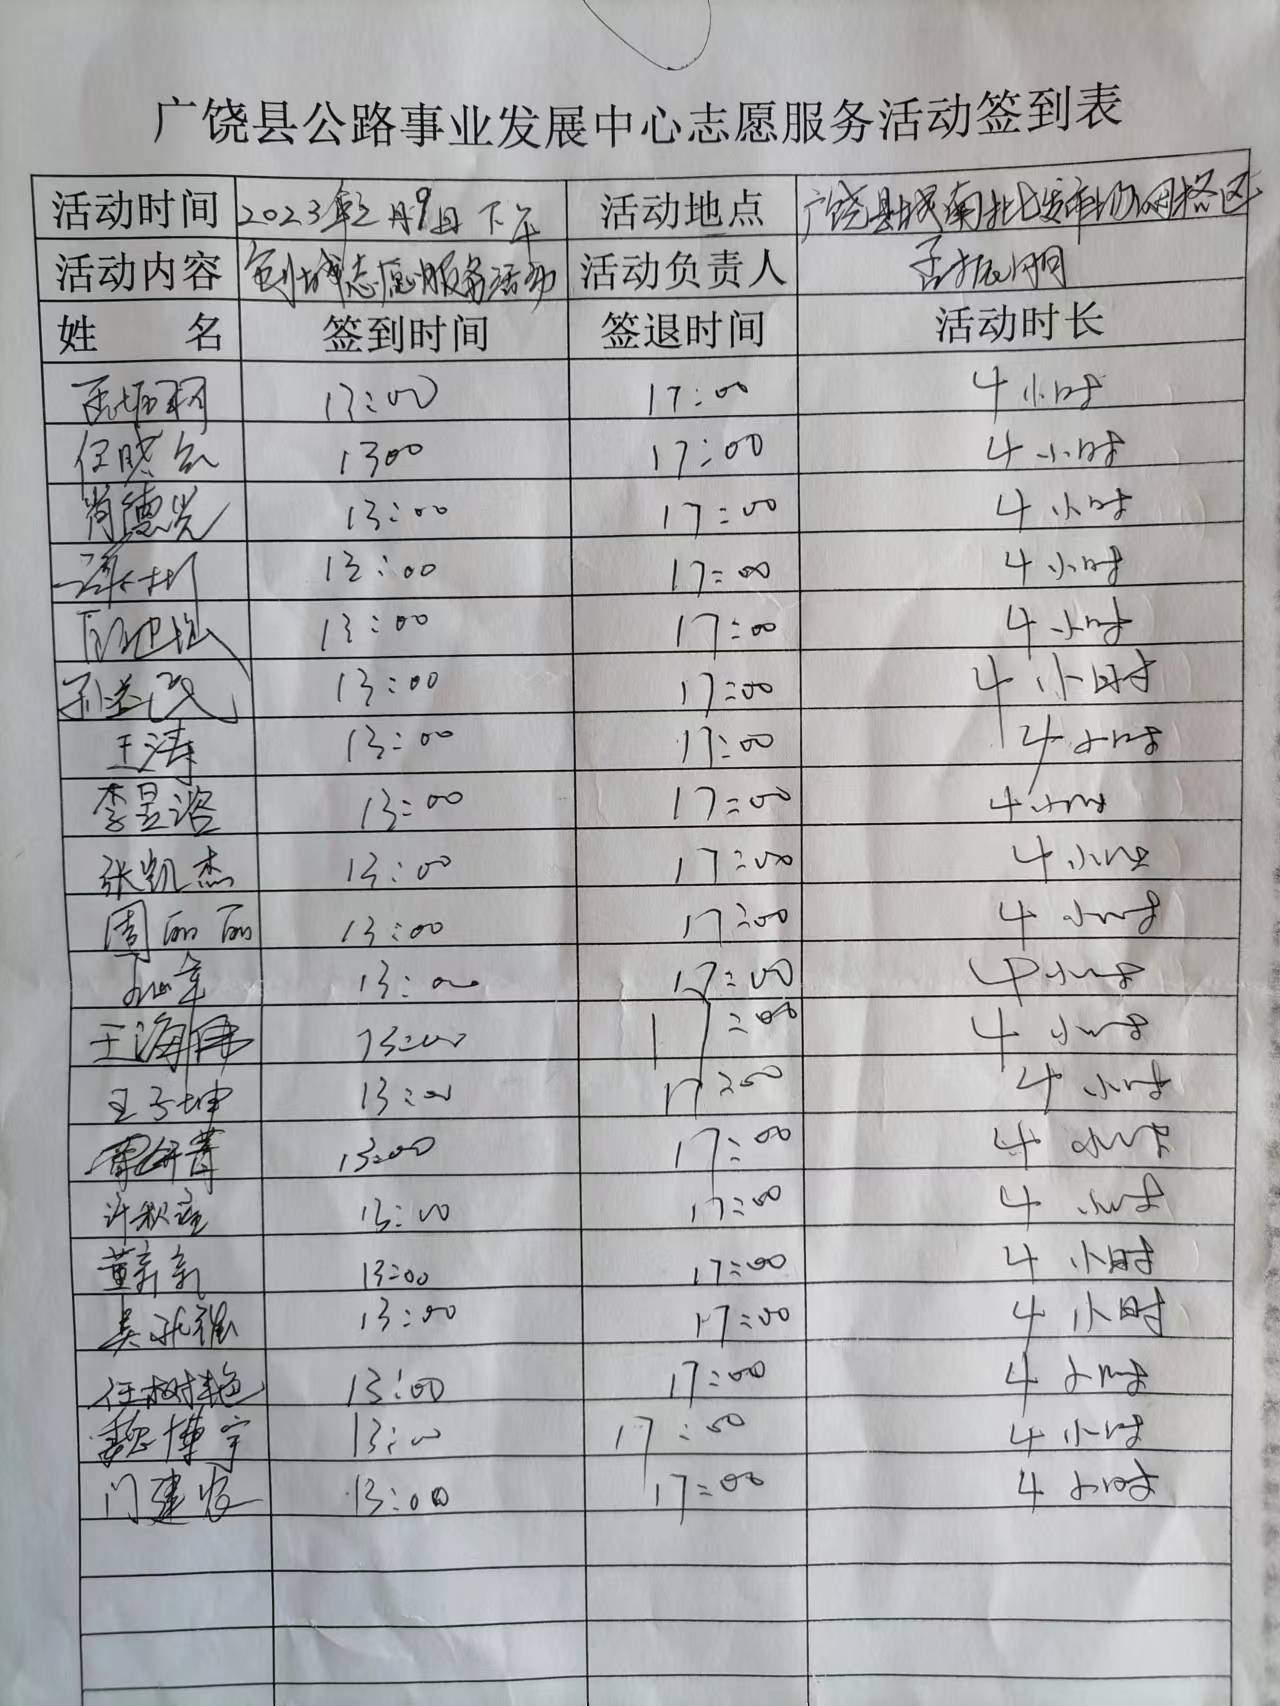 广饶县公路事业发展中心志愿服务活动签到表
活动时间 2023年2月9日下午 活动地点 广饶县城南批发市场网格区
活动内容 创城志愿服务活动 活动负责人
姓 名 签到时间 签退时间 活动时长
13:00 17:00 4小时
任晓 1300 17:00 4小时
肖德光 13:00 17:00 4小时
13:00 17:00 4小时
13:00 17:00 4小时
13:00 17:00 4小时
王涛 13:00 17:00 4小时
李昱谘 13:00 17:00 4小时
张凯杰 13:00 17:00 4小时
周丽丽 13:00 17:00 4小时
13:00 17:00 4小时
王海伟 13:00 17:00 4小时
王子坤 13:00 17:00 4小时
13:00 17:00 4小时
许秋 13:00 17:00 4小时
董 13:00 17:00 4小时
吴 13:00 17:00 4小时
任树艳 13:00 17:00 4小时
魏博宇 13:00 17:00 4小时
门建 13:00 17:00 4小时